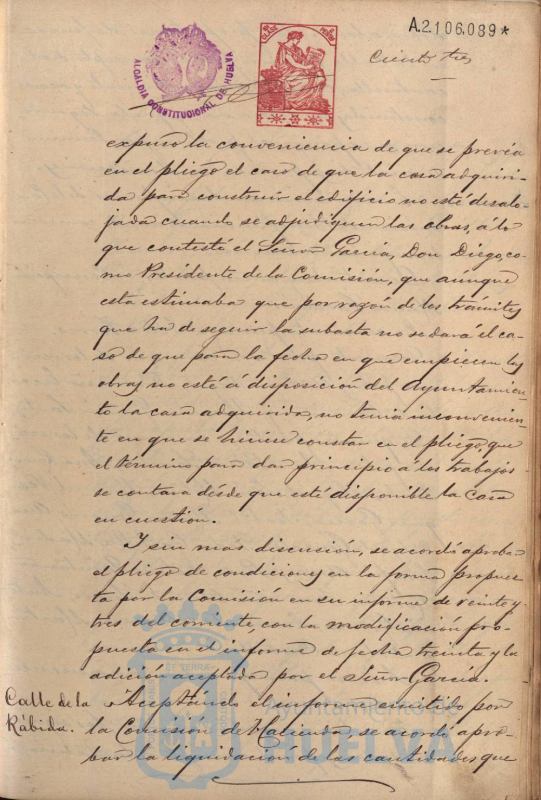 A.2.106,089*
Ciento tres
ALCALDIA CONSTITUCIONAL DE HUELVA
expuso la conveniencia de que se prevéa
en el pliego el caso de que la casa adquiri-
da para construir el edificio no esté desalo-
jada cuando se adjudiquen las obras, á lo
que contestó el Señor García, Don Diego, co-
mo Presidente de la Comisión, que aúnque
esta estimaba que por razón de los trámites
que ha de seguir la subasta no se dará el ca-
so de que para la fecha en que empiecen las
obras no esté á disposición del Ayuntamien-
to la casa adquirida, no tenia inconvenien-
te en que se hiciese constar en el pliego, que
el término para dar principio á los trabajos
se contara désde que esté disponible la casa
en cuestión.
Y sin más discusión, se acordó aproba
el pliego de condiciones en la forma propues-
ta por la Comisión en su informe de veinte y
tres del corriente, con la modificación pro-
puesta en el informe de fecha treinta y la
adición aceptada por el Señor García.
Calle de la
Rábida.
Aceptándo el informe emitido por
la Comisión de Hacienda, se acordó apro-
bar la liquidación de las cantidades que
Ayuntamiento de
HUELVA